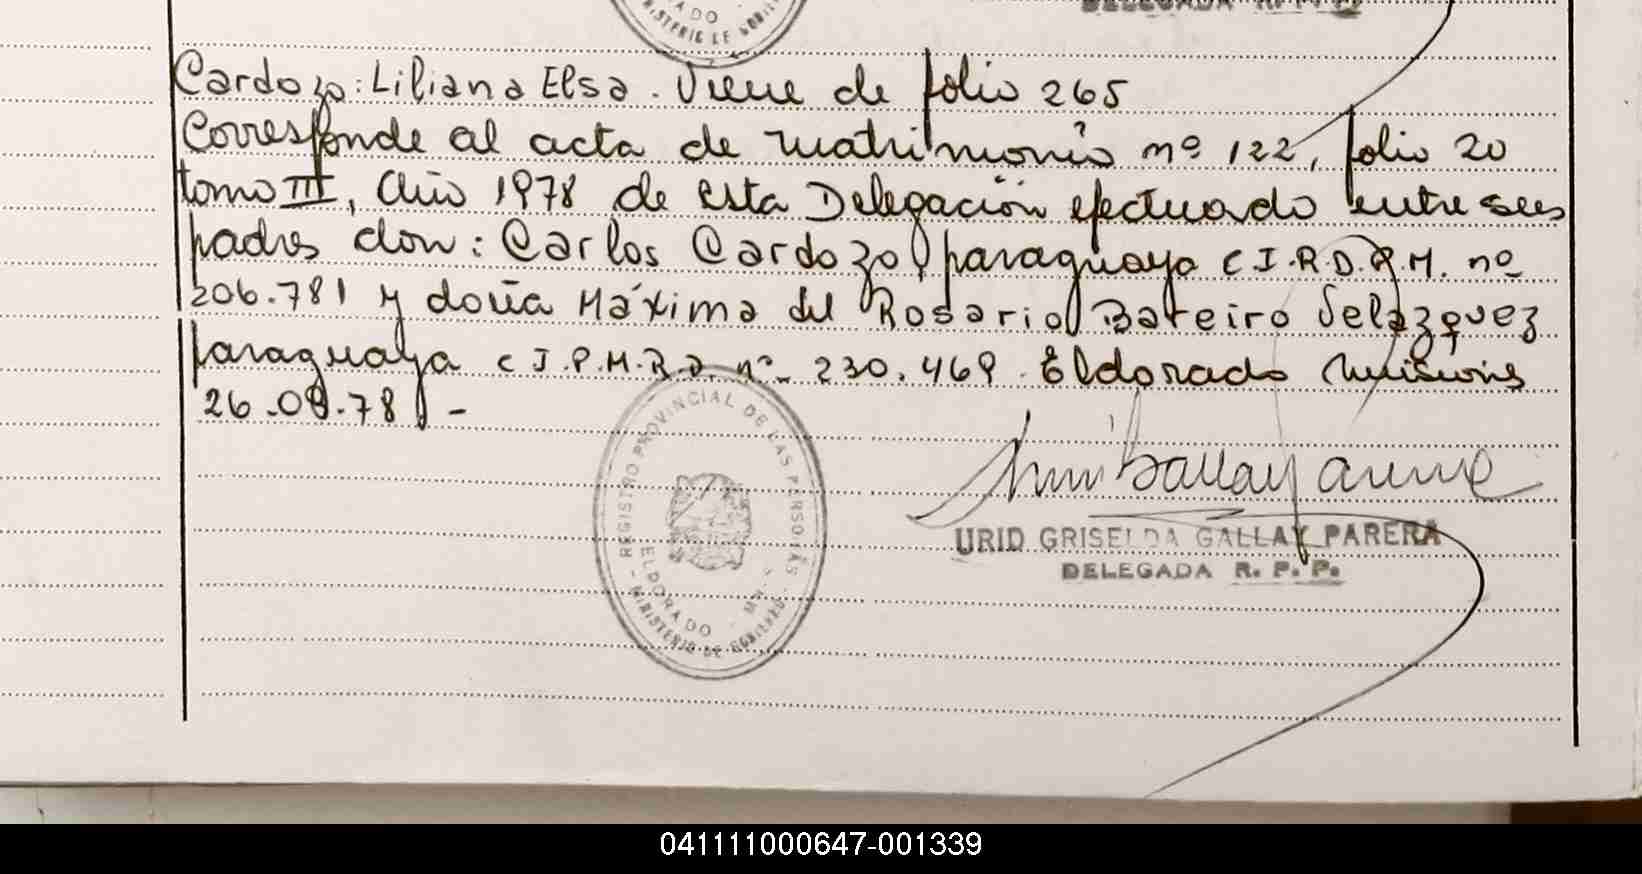 DELEGADA R. P. P.
ADO
MINISTERIO DE GOBIERNO
Cardozo: Liliana Elsa. Viene de folio 265
Corresponde al acta de matrimonio nº 122, folio 20
tomo III, Año 1978 de esta Delegación efectuado entre sus
padres don: Carlos Cardozo, paraguayo C I.P.D.R.M. nº
206.781 y doña Máxima del Rosario Bareiro Velazquez
paraguaya C I.P.M.R.D. nº 230.469. Eldorado Misiones
26.09.78 -
REGISTRO PROVINCIAL DE LAS PERSONAS
ELDORADO - MNES.
- MINISTERIO DE GOBIERNO -
URID GRISELDA GALLAY PARERA
DELEGADA R. P. P.
041111000647-001339